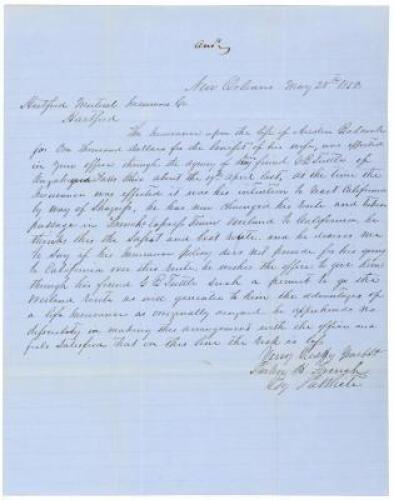 ansd
New Orleans May 28th 1850
Hartford Mutual Insurance Co
Hartford
The Insurance upon the life of
for One thousand dollars for the benefit of his wife, was effected
in your office through the agency of friend G P Tuttle of
Falls Ohio about the 19th April last, at the time the
Insurance was effected it was his intention to reach California
by way of Chagres, he has now changed his route and taken
passage in French's Express Train Overland to California, he
thinks this the safest and best route, and he desires me
to say if his Insurance policy does not provide for his going
to California over this route, he wishes the office to give him
through his friend G P Tuttle such a permit to go the
Overland Route as will guarantee to him the advantages of
a life Insurance as originally assured he apprehends no
difficulty in making this arrangement with the office and
feels satisfied that on this line the risk is less
Very Respy
Parker H French
By